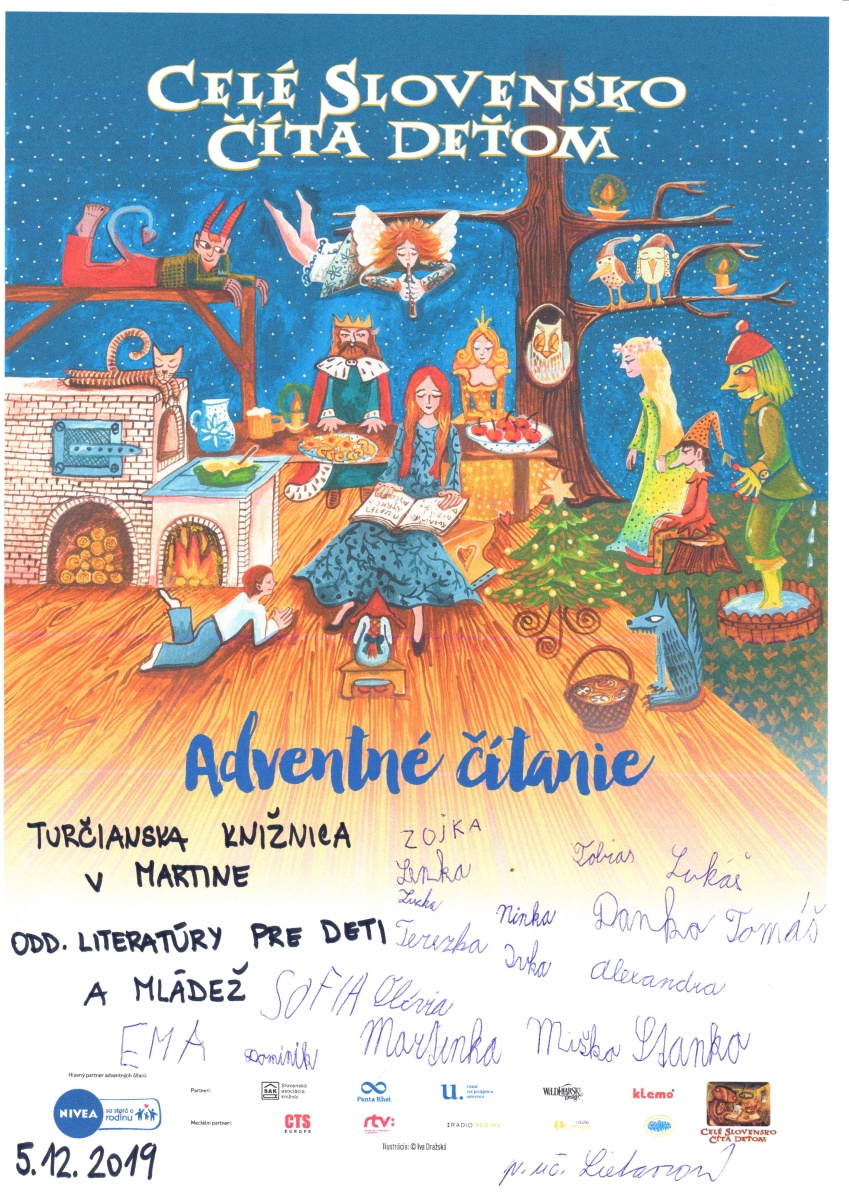 CELÉ SLOVENSKO
ČÍTA DEŤOM
Adventné čítanie
TURČIANSKA KNIŽNICA
V MARTINE
ODD. LITERATÚRY PRE DETI
A MLÁDEŽ
ZOJKA
Lenka
Tobias
Lukáš
Ninka
Danko
Tomáš
Terezka
Ivka
Alexandra
SOFIA
Olívia
EMA
Dominik
Martinka
Miško
Stanko
Hlavný partner adventných čítaní:
NIVEA
sa stará o
rodinu
Partneri:
SAK
Slovenská
asociácia
knižníc
Panta Rhei
u.
fond
na podporu
umenia
klemo
Mediálni partneri:
CTS
EUROPE
rtv:
RÁDIO REGINA
CELÉ SLOVENSKO
ČÍTA DEŤOM
Ilustrácia: © Iva Dražská
5.12.2019
p. uč.